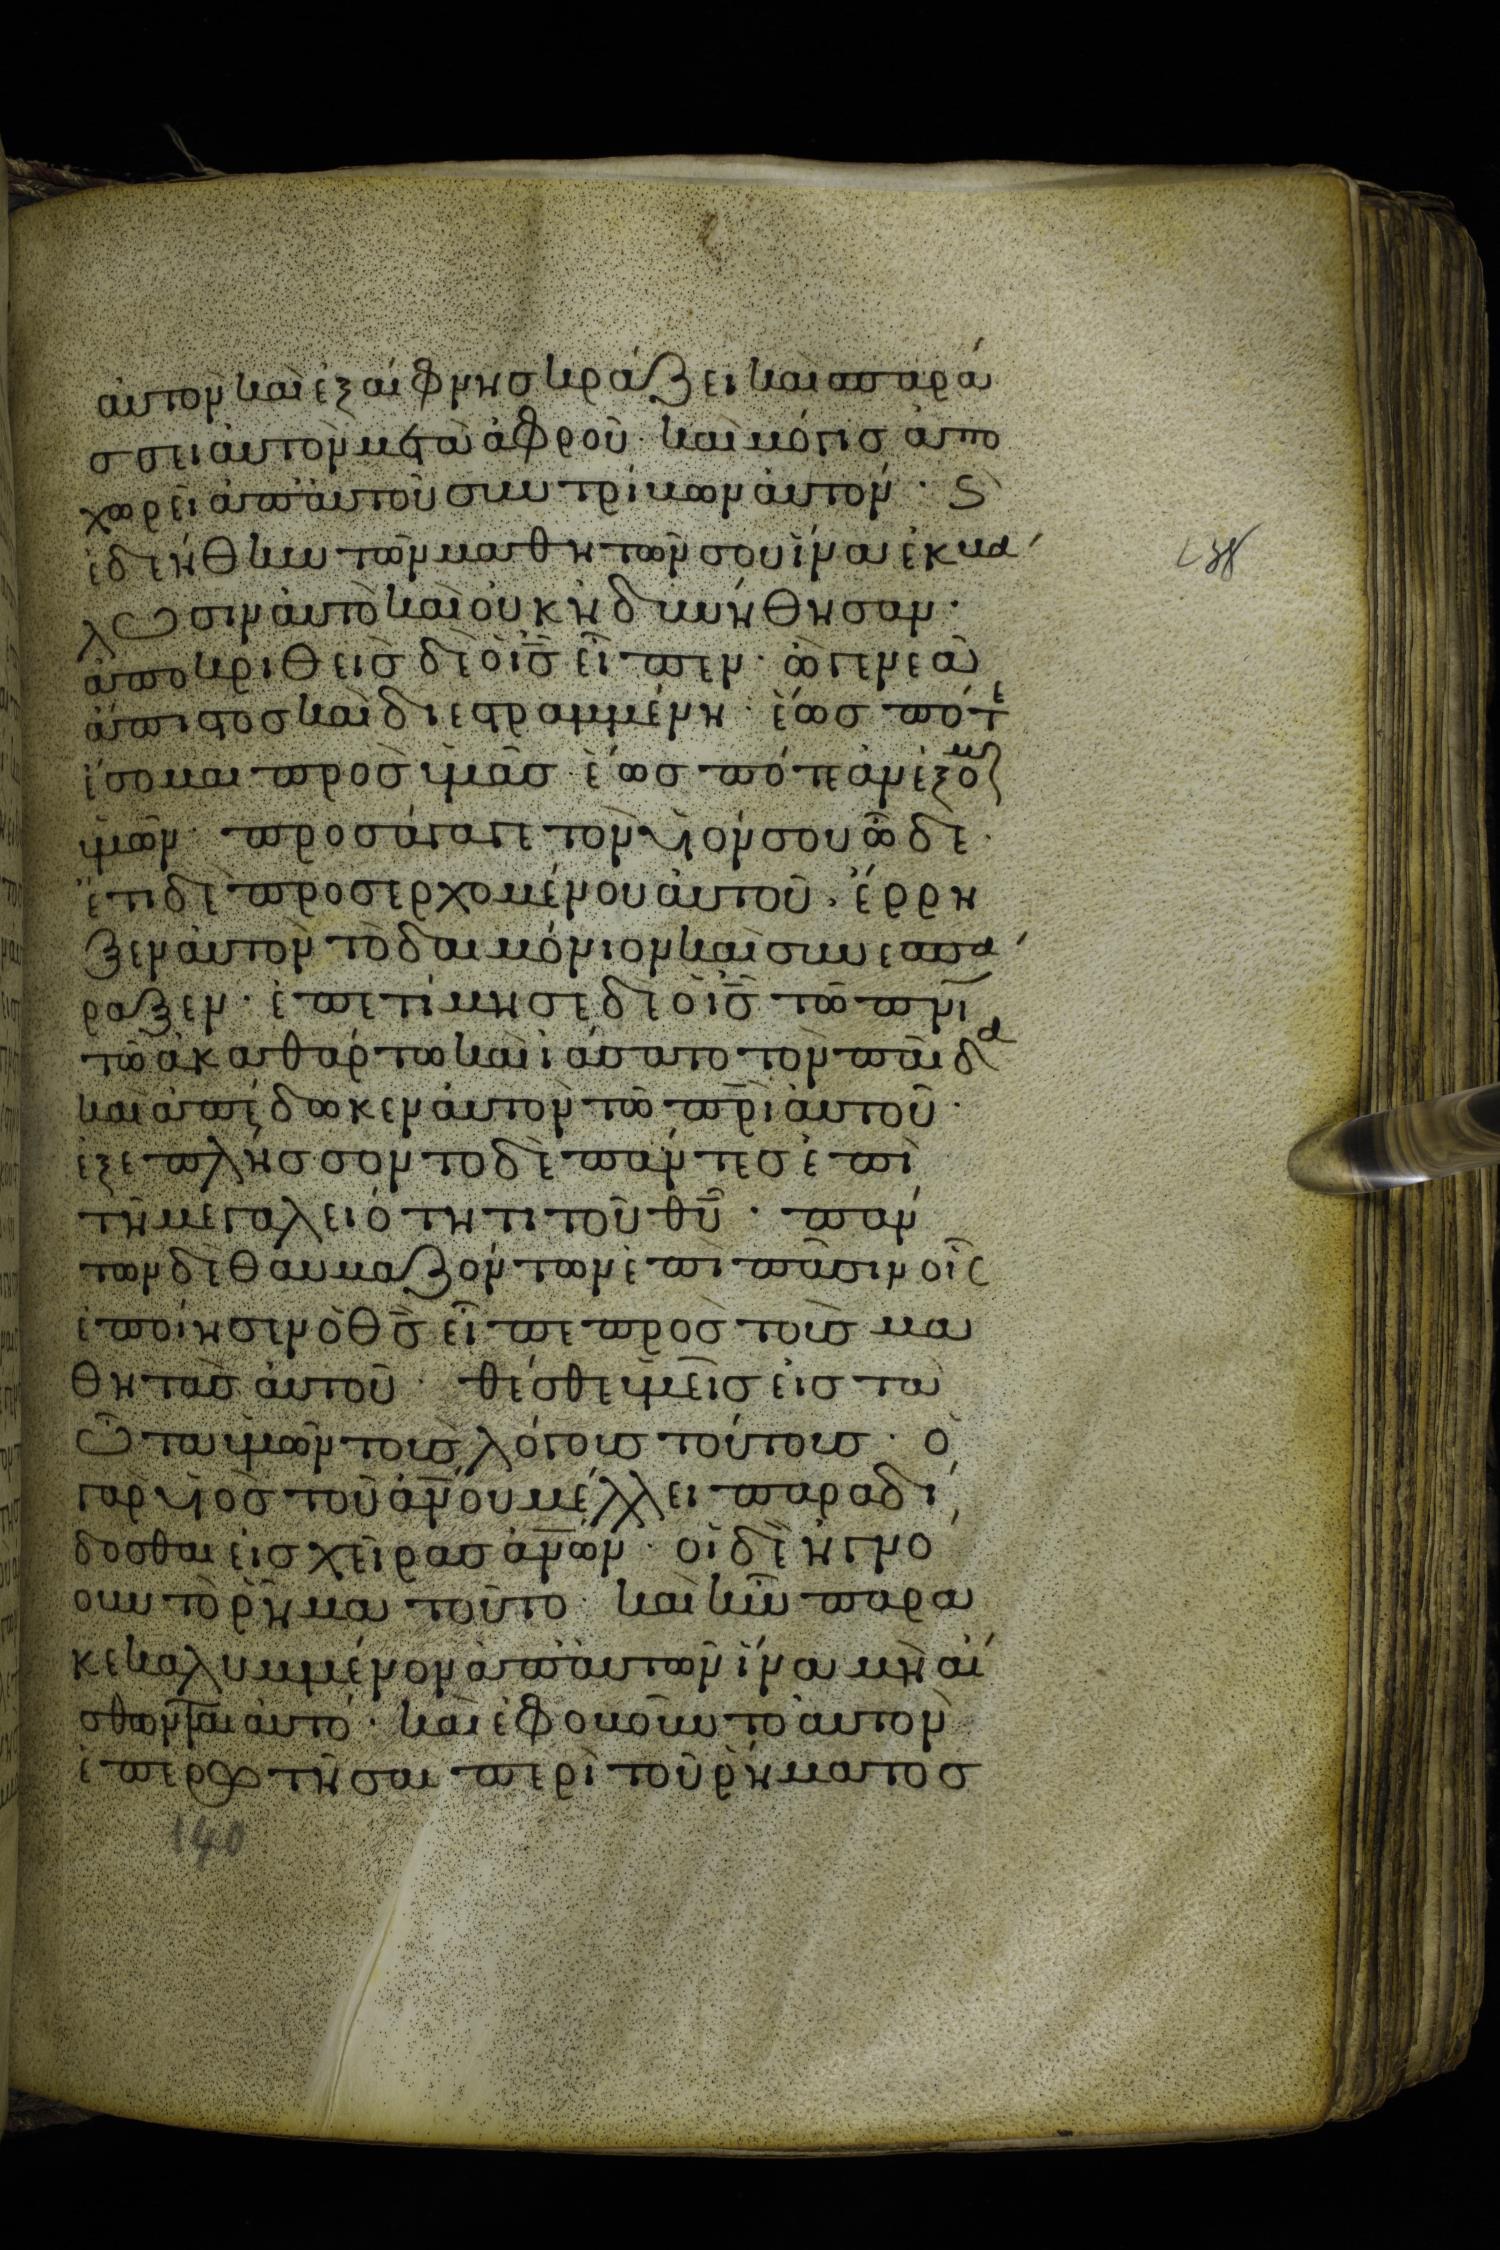 αὐτὸν καὶ ἐξαίφνης κράζει καὶ σπαρά
σσει αὐτὸν μετὰ ἀφροῦ· καὶ μόγις ἀπο
χωρεῖ ἀπ' αὐτοῦ συντρίβων αὐτόν· ϛ
ἐδεήθην τῶν μαθητῶν σου ἵνα ἐκβά
λωσιν αὐτὸ καὶ οὐκ ἠδυνήθησαν·
ἀποκριθεὶς δὲ ὁ ι̅ς̅ εἶπεν· ὦ γενεὰ
ἄπιστος καὶ διεστραμμένη· ἕως πότε
ἔσομαι πρὸς ὑμᾶς ἕως πότε ἀνέξομαι
ὑμῶν· προσάγαγε τὸν υἱόν σου ὧδε·
ἔτι δὲ προσερχομένου αὐτοῦ· ἔρρη
ξεν αὐτὸν τὸ δαιμόνιον καὶ συνεσπά
ραξεν· ἐπετίμησε δὲ ὁ ι̅ς̅ τῶ π̅ν̅ι̅
τῶ ἀκαθάρτω καὶ ἰάσατο τὸν παῖδα
καὶ ἀπέδωκεν αὐτὸν τῶ π̅ρ̅ι̅ αὐτοῦ·
ἐξεπλήσσοντο δὲ πάντες ἐπὶ
τῆ μεγαλειότητι τοῦ θ̅υ̅· πάν
των δὲ θαυμαζόντων ἐπὶ πᾶσιν οἷς
ἐποίησεν ὁ θ̅ς̅ εἶπε πρὸς τοὺς μα
θητὰς αὐτοῦ· θέσθε ὑμεῖς εἰς τὰ
ὦτα ὑμῶν τοὺς λόγους τούτους· ὁ
γὰρ υἱὸς τοῦ α̅ν̅ο̅υ̅ μέλλει παραδί
δοσθαι εἰς χεῖρας α̅ν̅ω̅ν̅· οἱ δὲ ἠγνό
ουν τὸ ῥῆμα τοῦτο· καὶ ἦν παρα
κεκαλυμμένον ἀπ' αὐτῶν ἵνα μὴ αἴ
σθωνται αὐτό· καὶ ἐφοβοῦντο αὐτὸν
ἐπερωτῆσαι περὶ τοῦ ῥήματος
140